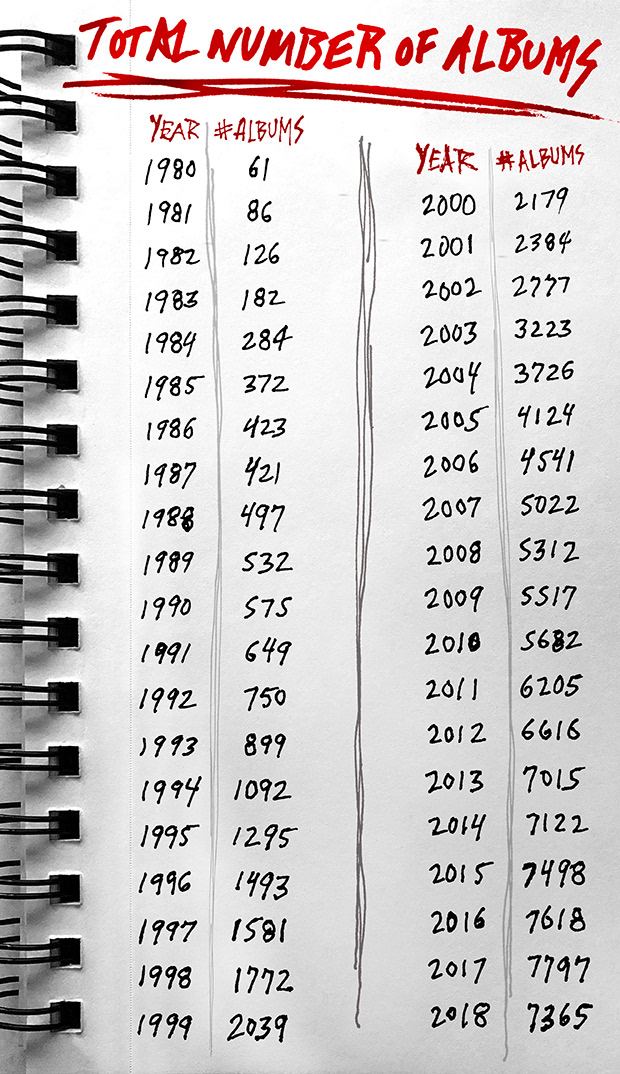 TOTAL NUMBER OF ALBUMS
YEAR #ALBUMS
1980 61
1981 86
1982 126
1983 182
1984 284
1985 372
1986 423
1987 421
1988 497
1989 532
1990 575
1991 649
1992 750
1993 899
1994 1092
1995 1295
1996 1493
1997 1581
1998 1772
1999 2039
YEAR #ALBUMS
2000 2179
2001 2384
2002 2777
2003 3223
2004 3726
2005 4124
2006 4541
2007 5022
2008 5312
2009 5517
2010 5682
2011 6205
2012 6616
2013 7015
2014 7122
2015 7498
2016 7618
2017 7797
2018 7365